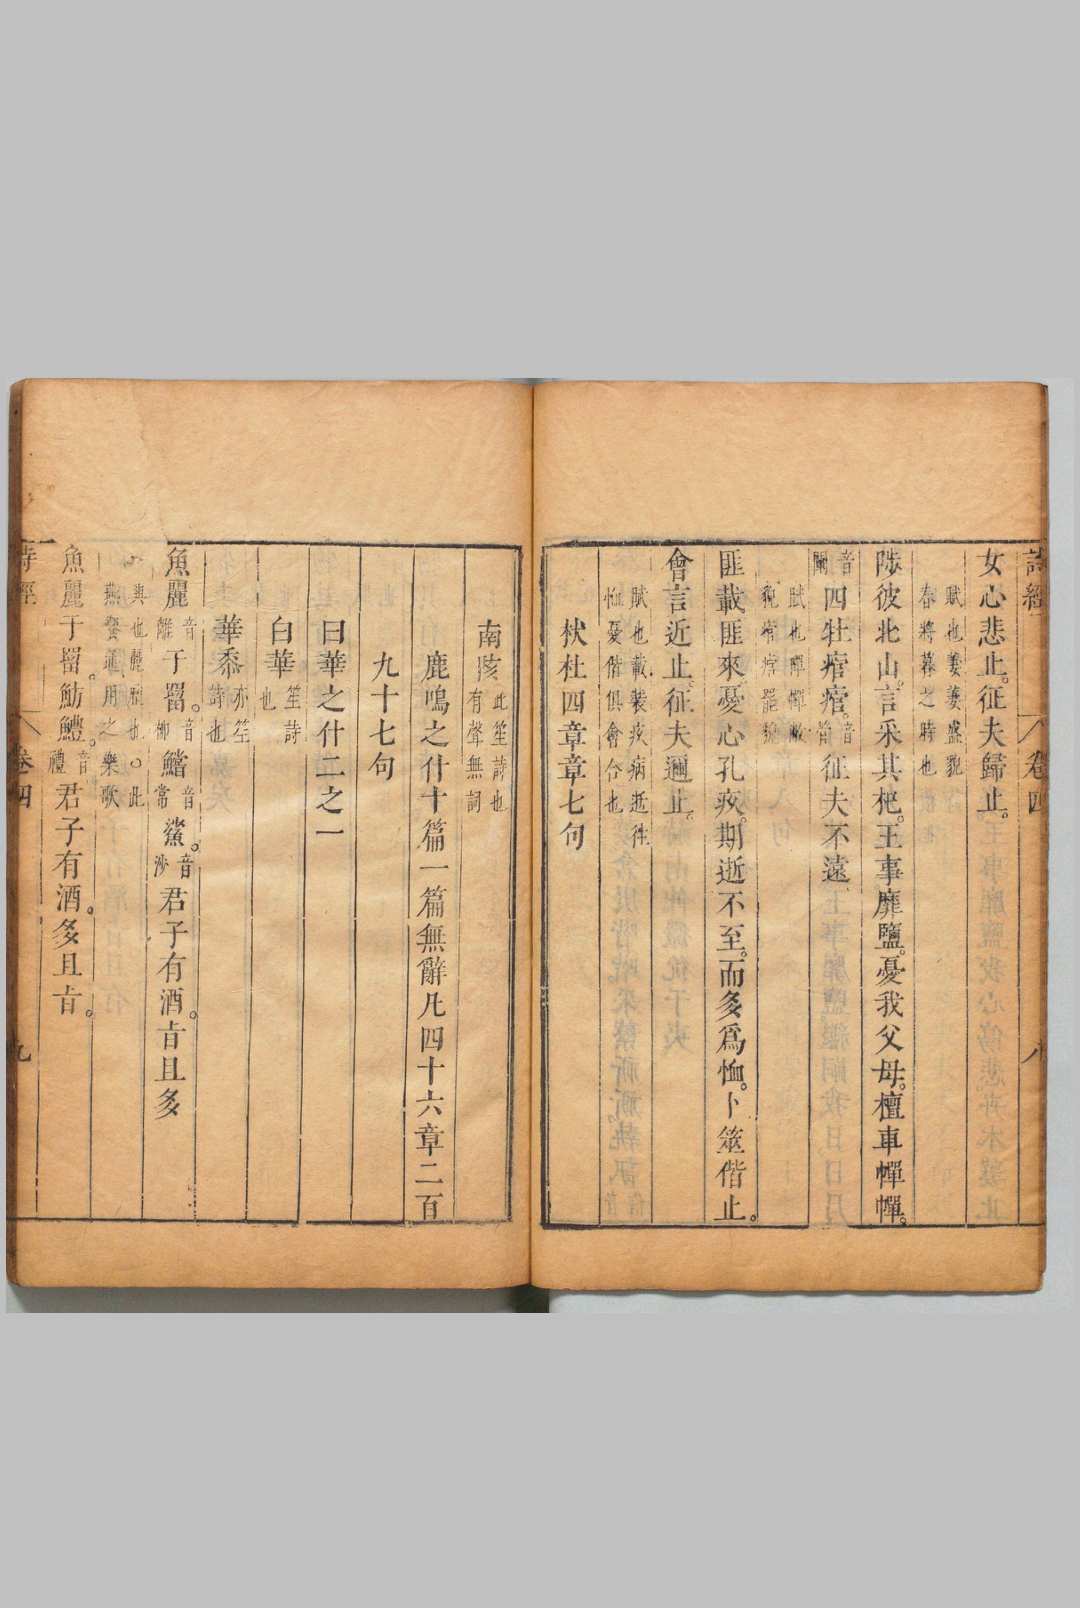 詩經 卷四 八
女心悲止。征夫歸止。
賦也萋萋盛貌
春將暮之時也
陟彼北山。言采其杞。王事靡盬。憂我父母。檀車幝幝。
音闡四牡痯痯。音管征夫不遠
賦也幝幝敝
貌痯痯罷貌
匪載匪來憂心孔疚。期逝不至。而多爲恤。卜筮偕止。
會言近止。征夫邇止。
賦也載裝疚病逝往
恤憂偕俱會合也
杕杜四章章七句
南陔此笙詩也有聲無詞
鹿鳴之什十篇一篇無辭凡四十六章二百
九十七句
白華之什二之一
白華笙詩也
華黍亦笙詩也
魚麗音離于罶。音柳鱨音常鯊。音沙君子有酒。旨且多
興也麗歷也○此
燕饗通用之樂歌
魚麗于罶。魴鱧。音禮君子有酒。多且旨。
詩經 卷四 九